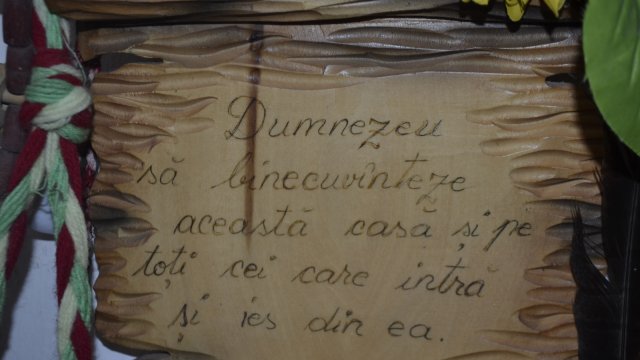 Dumnezeu
să binecuvinteze
această casă și pe
toți cei care intră
și ies din ea.